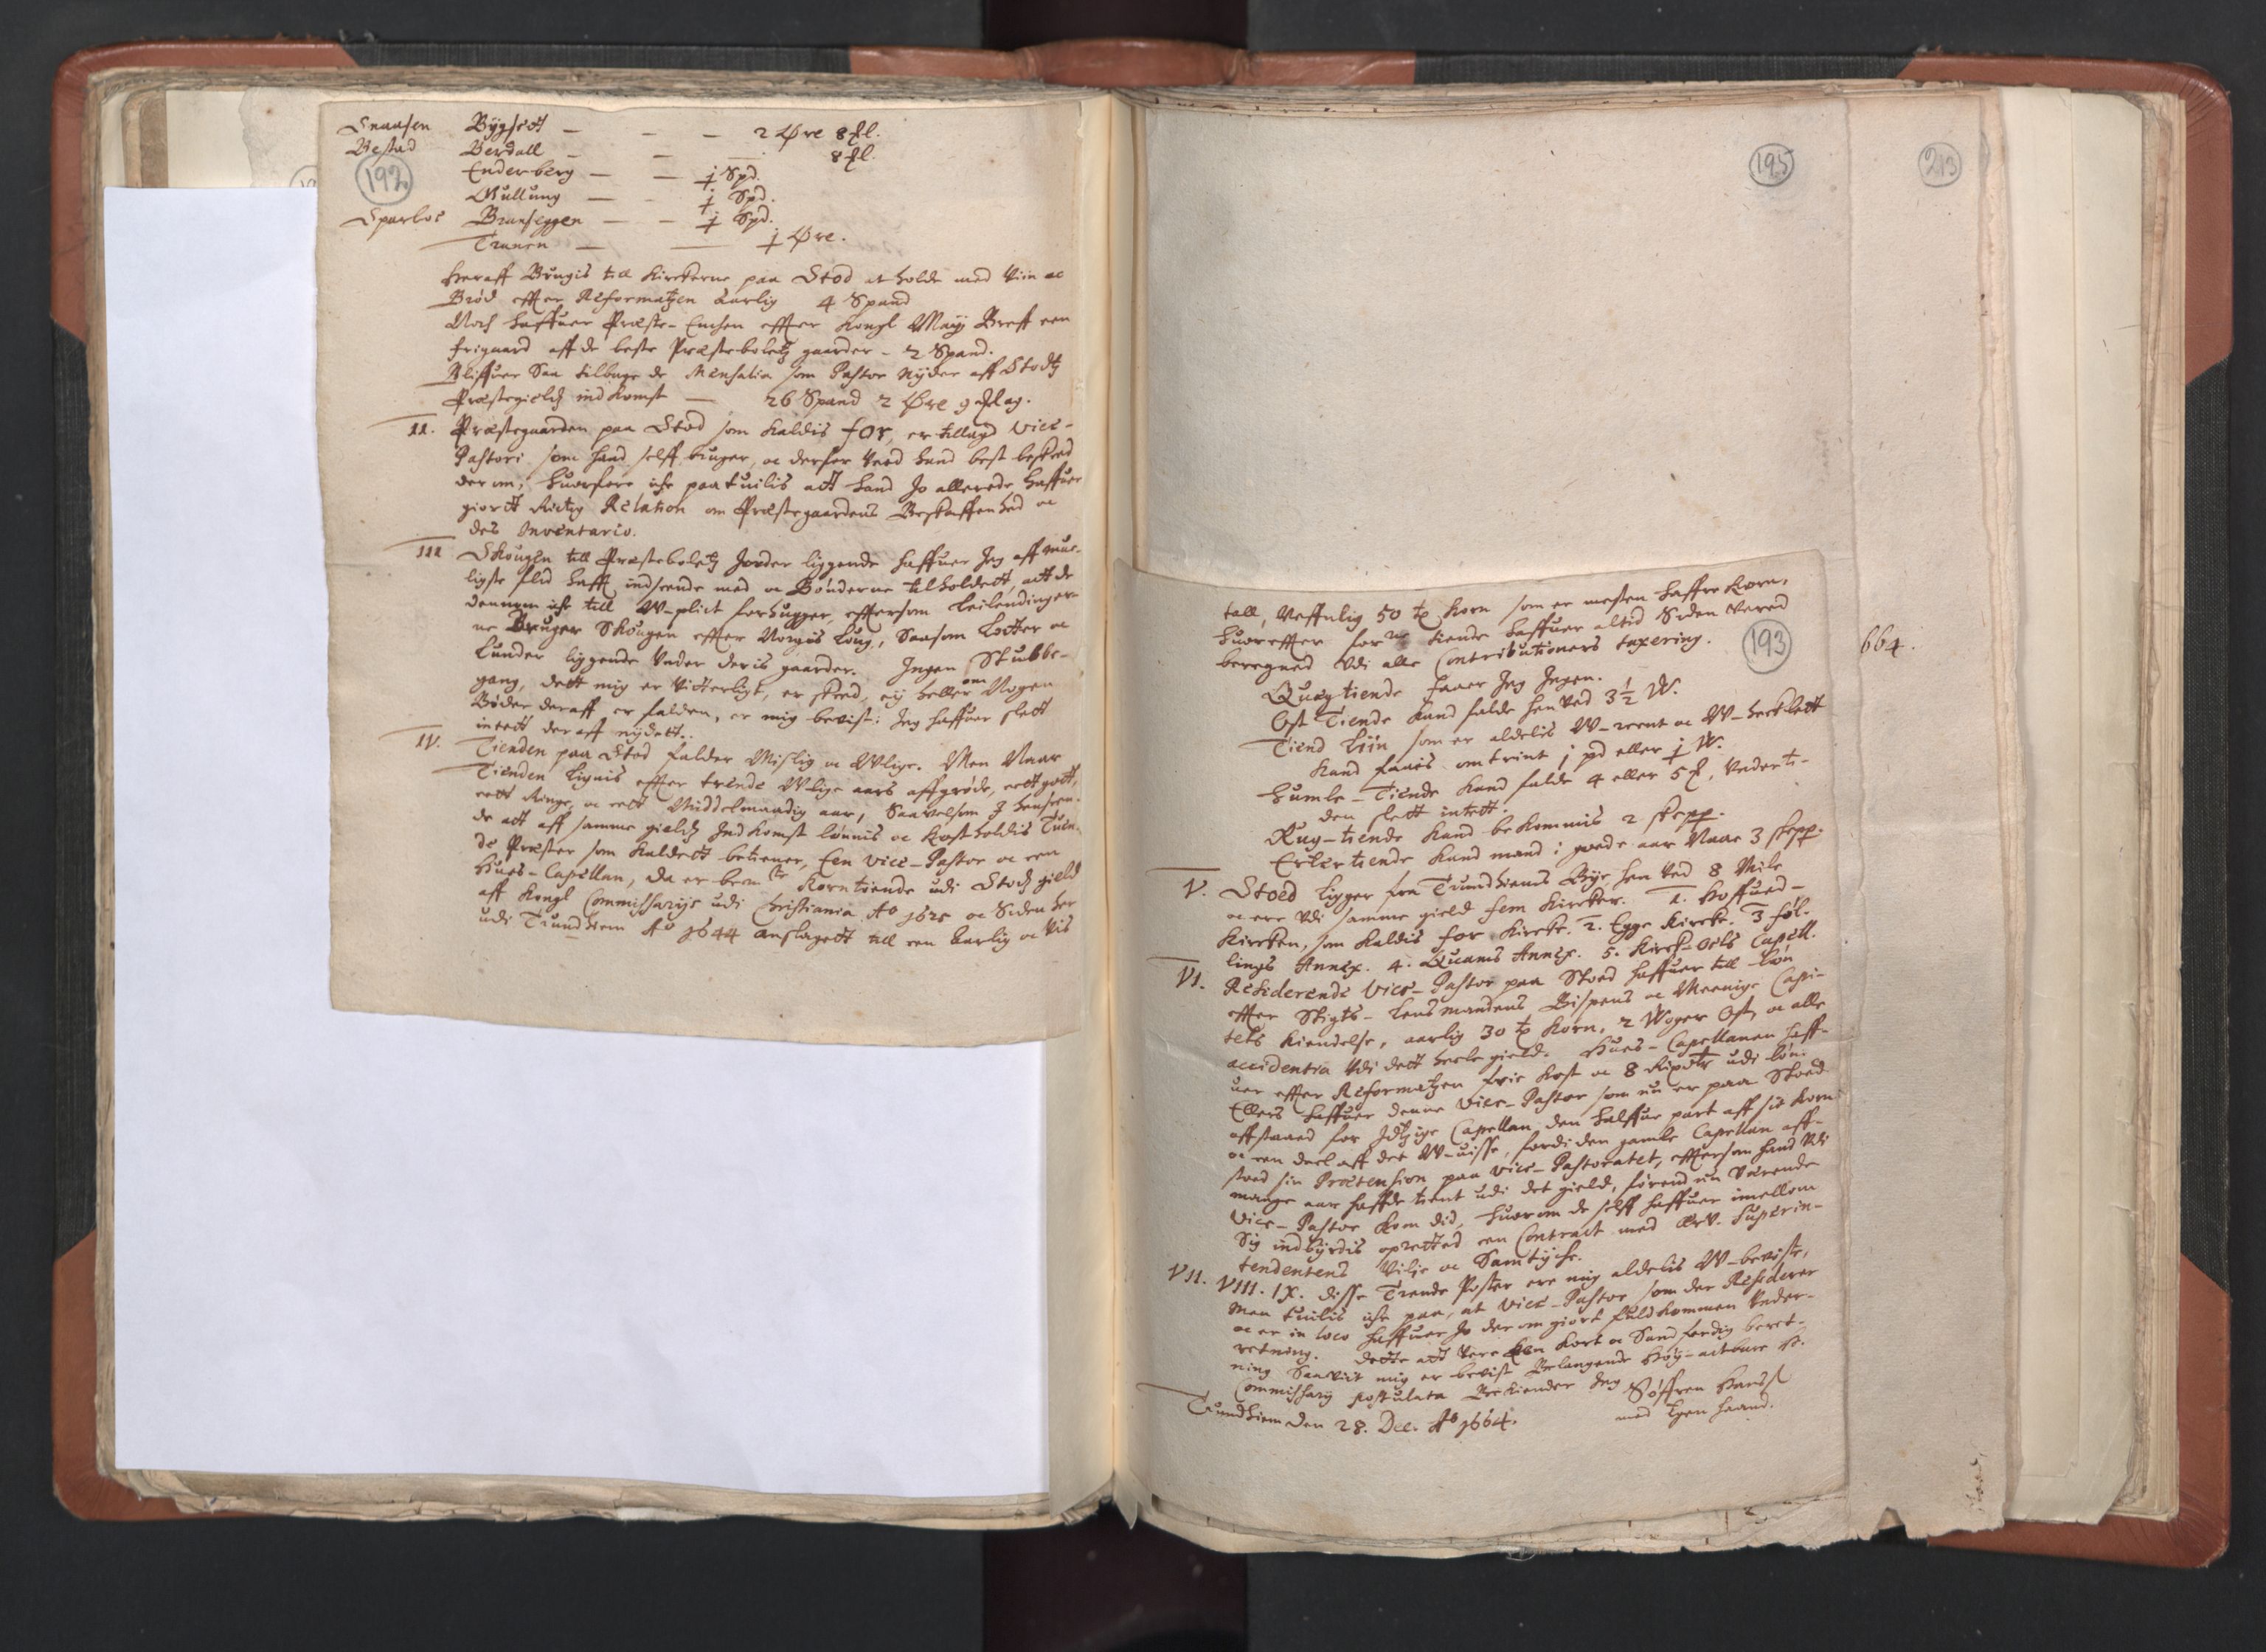 Snaasen Bÿgset — — — 2 Øre 8 ſl.
Bestad Verdall — — — 8 ſl.
192
Enderberg — — j Spd.
Gullung — — j Spd.
Sparboe Branseggen — — j Spd.
Tranen — — j Øre.
Heraff Brugis till Kirckerne paa Stod at holde med Viin oc
Brød effter Reformatzen aarlig 4 Spand
Noch haffuer Præste-Enchen effter Kongl. Maÿ Breff een
frigaard aff de beste Præstebolets gaarder - 2 Spand.
Bliffuer Saa tilbage de Mensalia som Pastor Nÿder aff Stodtz
Præstegieldtz indkomst — 26 Spand 2 Øre 9 ſlag.
II. Præstegaarden paa Stod som kaldis for, er tillagd Vice-
Pastori som hand selff bruger, oc derfor veed hand best beskeed
der om, huorfore iche paatuilis att hand Jo allerede haffuer
giortt Rictig Relation om Præstegaardens Beskaffenhed oc
des Inventario.
III Skougen till Præstebolets Jorder liggende haffuer Jeg aff mue-
ligste flid hafft indseende med oc Bønderne tilholdett, att de
dennem iche till W-plict forhugger, efftersom Leilendinger-
ne Bruger Skougen effter Norgis Loug, Saasom Lotter oc
Lunder liggende under deris gaarder. Ingen Stubbe-
gang, dett mig er Vitterligt, er skeed, eÿ heller om Nogen
Bøder deraff er falden, er mig bevist: Jeg haffuer slett
inted deraff nydett.
IV. Tienden paa Stod falder Mislig oc Wlige. Men Naar
Tienden Lignis effter trende Wlige aars affgrøde, ett gott,
ett Ringe, oc ett Middelmaadig aar, Saavelsom J henseen-
de att aff samme gieldtz Indkomst lønnis oc kostholdis Tuen-
de Præster som kaldett betiener, Een Vice-Pastor oc een
Huus-Capellan, da er bemte Korntiende udi Stodtz gield
aff Kongl Commissarijs udi Christiania Ao 1625 oc Siden her
udi Trundhiem Ao 1644 anslagett till een aarlig oc vis
195
213
tall, Neffnlig 50 tø Korn som er mesten haffre Korn,
huoreffter forne tiende haffuer altid Siden Vered
beregned Udi alle Contributioners taxering.
193
664.
Quegtiende faaer Jeg Ingen.
Ost Tiende kand falde hen ved 3½ W.
Tiend Liin som er aldelis W-reent oc W-hecklett
Kand faais omtrint j pd eller j W.
Humle-Tiende Kand falde 4 eller 5 ℔, Underti-
den slett intett.
Rug-tiende Kand bekommis 2 skepp.
Ertertiende Kand mand i goede aar Naae 3 skepp.
V. Stoed Ligger fra Trundhiems Bye hen ved 8 Mile
oc ere Udi samme gield fem Kircker. 1. Hoffued-
Kircken, som Kaldis for Kircke. 2. Egge Kircke. 3 føl-
lings Annex. 4. Quams Annex. 5. Kirck-oels Capell.
VI. Residerende Vice-Pastor paa Stoed haffuer till Løn
effter Stigts-Lensmandens Bispens oc Meenige Capi-
tels Kiendelse, aarlig 30 tø Korn, 2 Woger Ost, oc alle
accidentia Udi dett heele gield. Huus-Capellanen haff-
uer effter Reformatzen frie Kost oc 8 Rixdlr udi løn.
Ellers haffuer denne Vice-Pastor som nu er paa Stoed
affstaaed for Idtzige Capellan den halffue part aff sit Korn
oc een deel aff det W-uisse, fordi den gamle Capellan aff-
stoed sin Prætension paa Vice-Pastoratet, efftersom hand Udi
mange aar haffde tient udi det gield, førend nu Værende
Vice-Pastor kom did, huorom de selff haffuer imellom
Sig indbÿrdis oprettet een Contract med Erv. Superin-
tendentens Vilje oc Samtÿche.
VII. VIII. IX. Disse Trende Poster ere mig aldelis W-beviste,
Men tuilis iche paa, at Vice-Pastor som der Residerer
oc er in loco haffuer Jo derom giort fuldkommen Under-
retning. Dette att Vere Een Kort oc Sandferdig beret-
ning Saavit mig er bevist Belangende Høÿ-actbare H.
Commissarÿ postulata Bekiender Jeg Søffren Hanss
Trundhiem den 28. Dec. Ao 1664. med Egen haand.